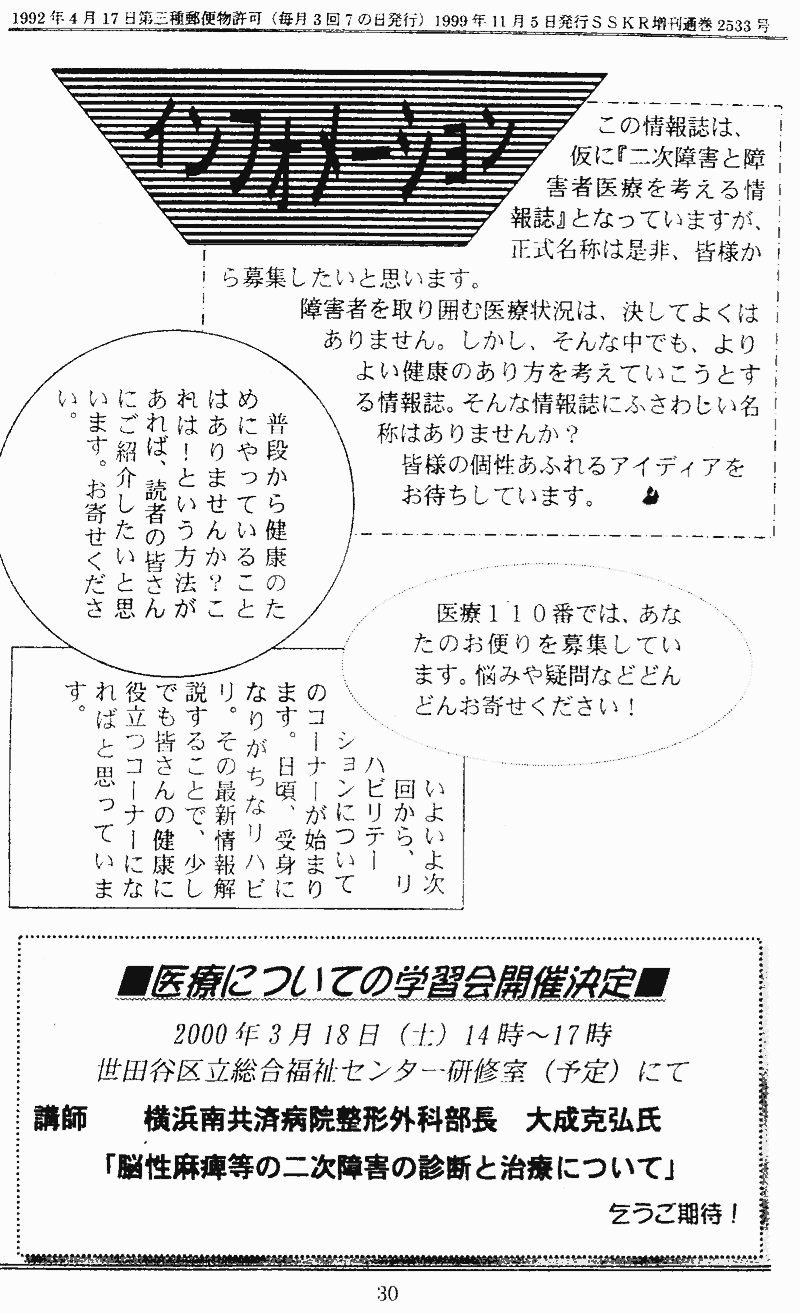 1992年4月17日第三種郵便物許可（毎月3回7の日発行）1999年11月5日発行SSKR増刊通巻2533号
インフォメーション
この情報誌は、
仮に『二次障害と障
害者医療を考える情
報誌』となっていますが、
正式名称は是非、皆様か
ら募集したいと思います。
障害者を取り囲む医療状況は、決してよくは
ありません。しかし、そんな中でも、より
よい健康のあり方を考えていこうとす
る情報誌。そんな情報誌にふさわしい名
称はありませんか？
皆様の個性あふれるアイディアを
お待ちしています。
普段から健康のた
めにやっていること
はありませんか？こ
れは！という方法が
あれば、読者の皆さん
にご紹介したいと思
います。お寄せくださ
い。
医療１１０番では、あな
たのお便りを募集してい
ます。悩みや疑問などどん
どんお寄せください！
いよいよ次
回から、リ
ハビリテー
ションについて
のコーナーが始まり
ます。日頃、受身に
なりがちなリハビ
リ。その最新情報解
説することで、少し
でも皆さんの健康に
役立つコーナーにな
ればと思っていま
す。
■医療についての学習会開催決定■
2000年3月18日（土）14時～17時
世田谷区立総合福祉センター研修室（予定）にて
講師　横浜南共済病院整形外科部長　大成克弘氏
「脳性麻痺等の二次障害の診断と治療について」
乞うご期待！
30